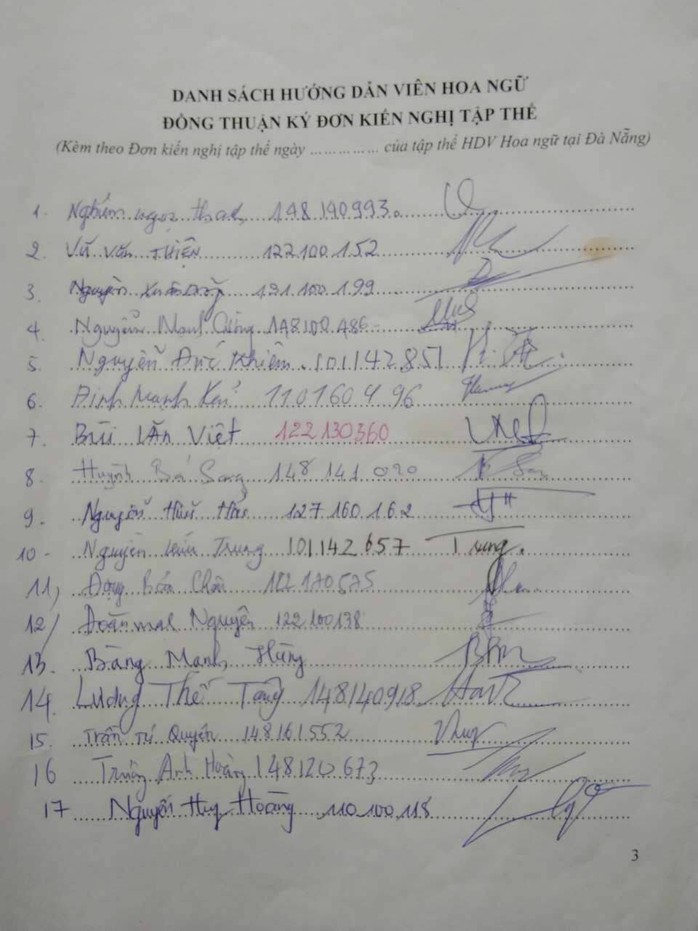 DANH SÁCH HƯỚNG DẪN VIÊN HOA NGỮ
ĐỒNG THUẬN KÝ ĐƠN KIẾN NGHỊ TẬP THỂ
(Kèm theo Đơn kiến nghị tập thể ngày ............... của tập thể HDV Hoa ngữ tại Đà Nẵng)
1. ngọc 148140993.
2. Vũ Văn THIỆN 122100152
3. Nguyễn Xuân 191.100.199
4. Nguyễn Mạnh 148100486
5. Nguyễn Đức Khiêm 101142851
6. Đinh Mạnh 110160496
7. Bùi Văn Việt 122130360
8. Huỳnh Bá Sang 148141020
9. Nguyễn Hữu 127160162
10- Nguyễn Trung 101142657 Trung.
11, Đặng Bảo Châu
12/ Đoàn Nguyên 122100138
13. Bàng Mạnh Hùng
14. Lương Thế Tang 148140918
15. Trần Tú Quyên 148161552
16 Anh Hoàng 148120673
17 Nguyễn Huy Hoàng 110.100.118
3